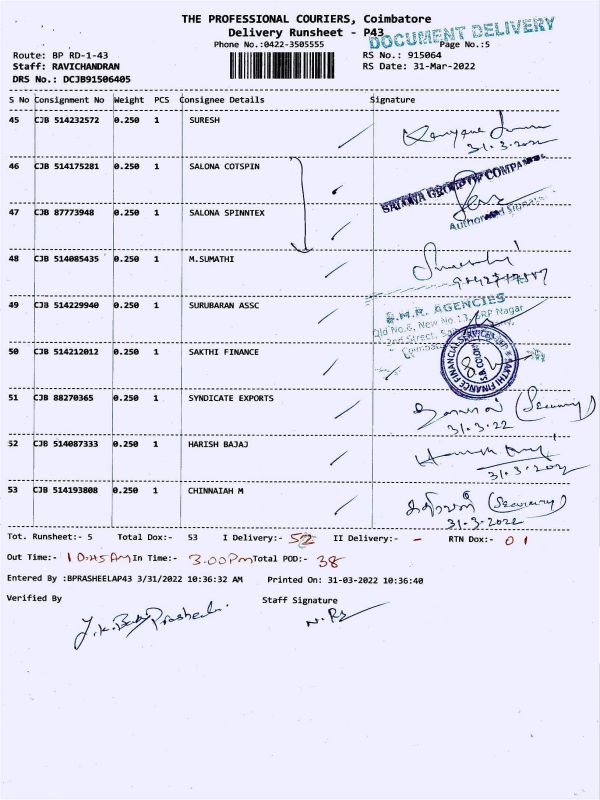 THE PROFESSIONAL COURIERS, Coimbatore
Delivery Runsheet - P43
DOCUMENT DELIVERY
Phone No.:0422-3505555
Page No.:5
Route: BP RD-1-43
RS No.: 915064
Staff: RAVICHANDRAN
RS Date: 31-Mar-2022
DRS No.: DCJB91506405
S No Consignment No Weight PCS Consignee Details Signature
45 CJB 514232572 0.250 1 SURESH
31.3.202
46 CJB 514175281 0.250 1 SALONA COTSPIN
SALONA GROUP OF COMPANIES
47 CJB 87773948 0.250 1 SALONA SPINNTEX
Authorised Signat
48 CJB 514085435 0.250 1 M.SUMATHI
49 CJB 514229940 0.250 1 SURUBARAN ASSC
S.M.R. AGENCIES
Old No.6, New No.13, SRP Nagar
2nd Street, Sai
Coimbat
50 CJB 514212012 0.250 1 SAKTHI FINANCE
SAKTHI FINANCE FINANCIAL SERVICES
51 CJB 88270365 0.250 1 SYNDICATE EXPORTS
(Security)
31.3.22
52 CJB 514087333 0.250 1 HARISH BAJAJ
31.3.202
53 CJB 514193808 0.250 1 CHINNAIAH M
(Security)
31.3.2022
Tot. Runsheet:- 5 Total Dox:- 53 I Delivery:- 52 II Delivery:- - RTN Dox:- 01
Out Time:- 10:45AM In Time:- 3.00Pm Total POD:- 38
Entered By :BPRASHEELAP43 3/31/2022 10:36:32 AM Printed On: 31-03-2022 10:36:40
Verified By Staff Signature